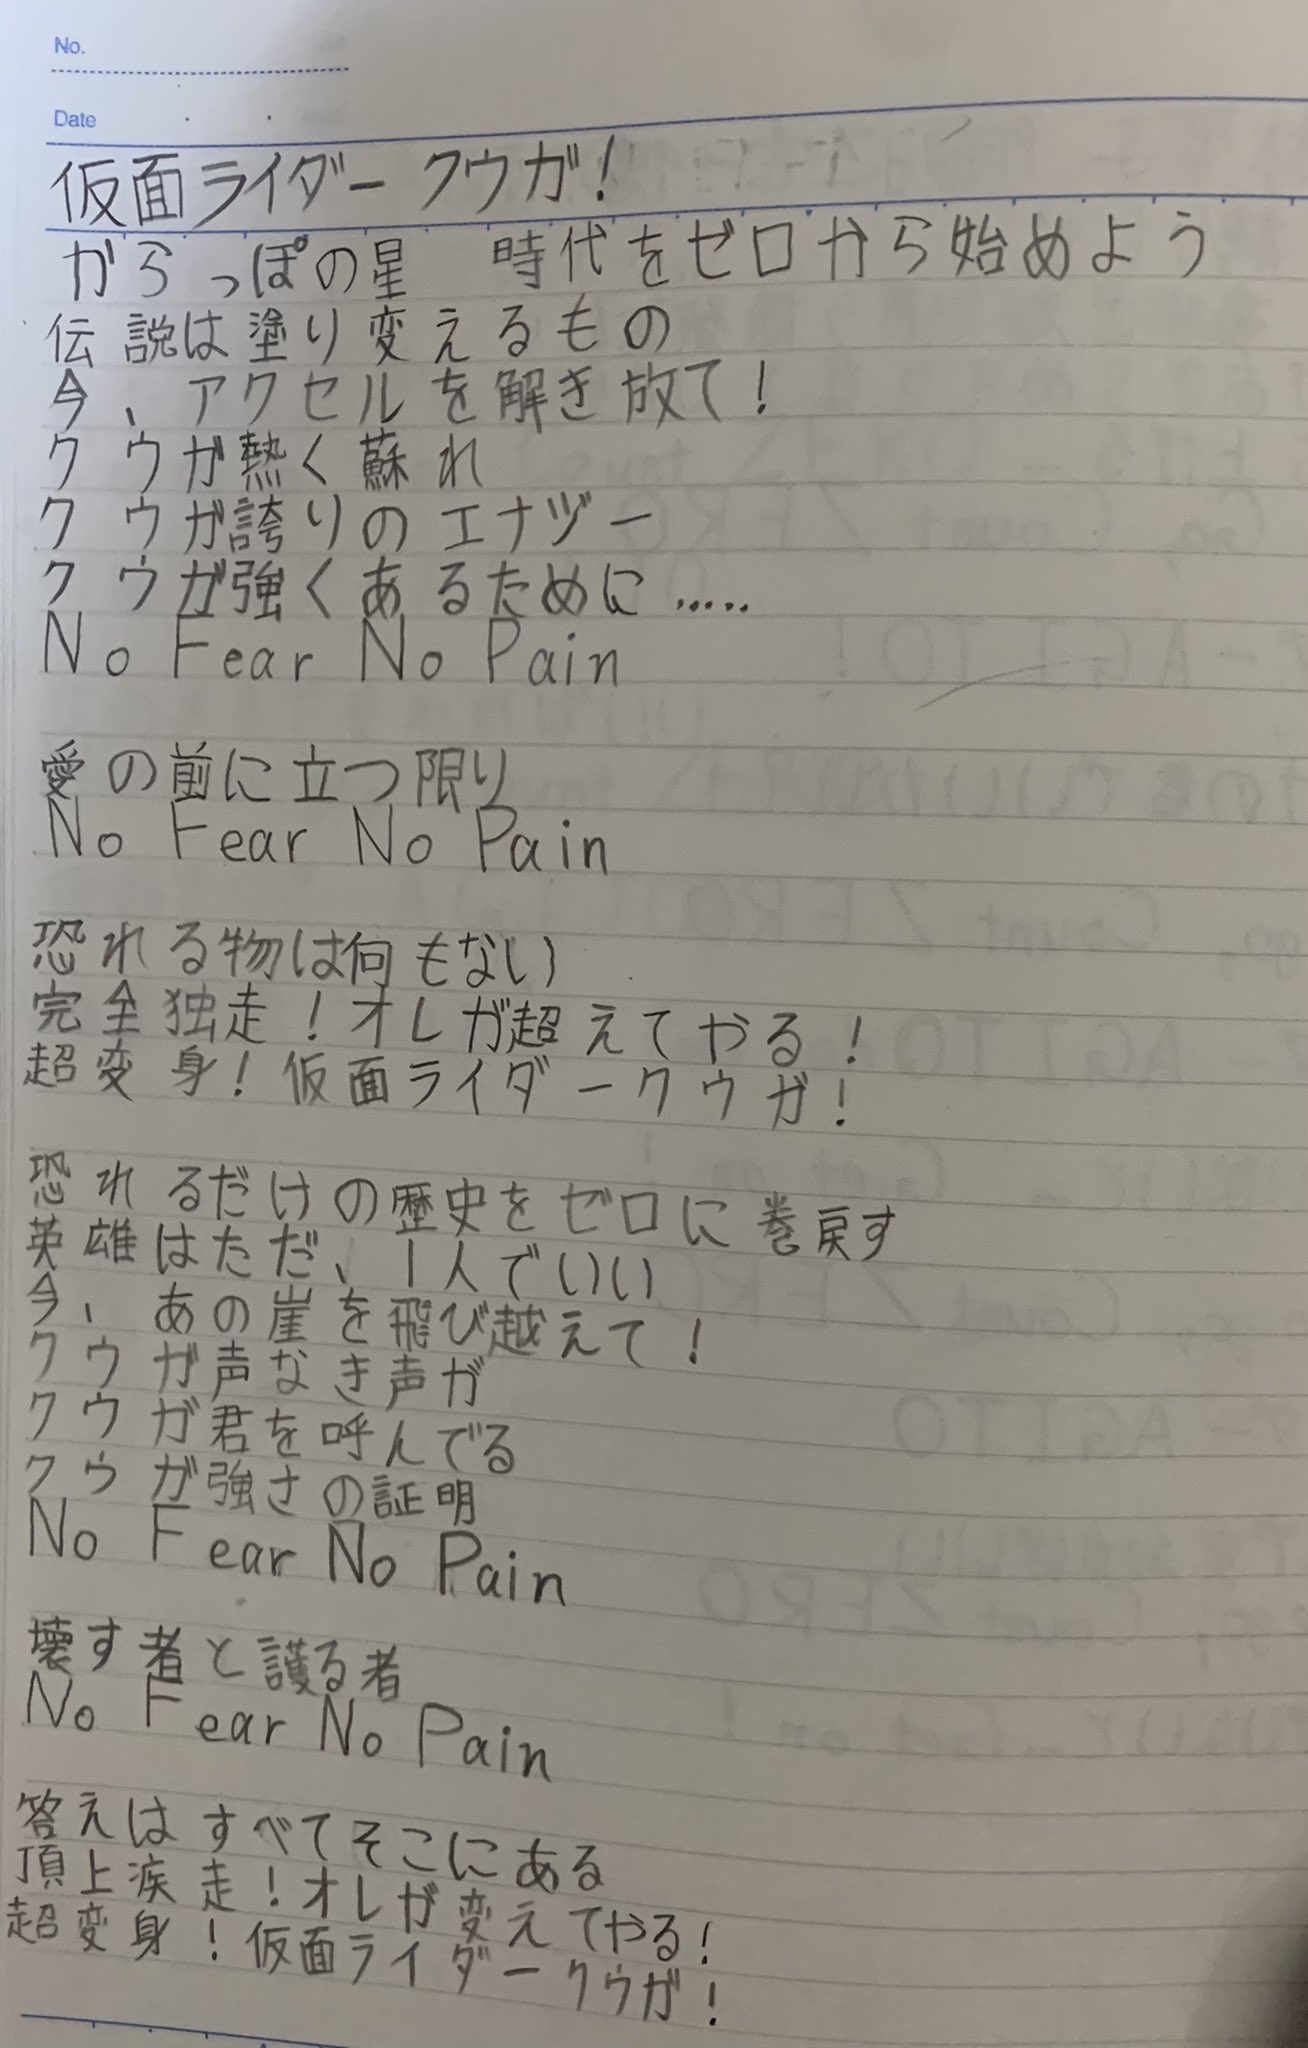 No.
Date
仮面ライダークウガ!
からっぽの星 時代をゼロから始めよう
伝説は塗り変えるもの
今、アクセルを解き放て!
クウガ熱く蘇れ
クウガ誇りのエナヅー
クウガ強くあるために.....
No Fear No Pain
愛の前に立つ限り
No Fear No Pain
恐れる物は何もない
完全独走!オレが超えてやる!
超変身!仮面ライダークウガ!
恐れるだけの歴史をゼロに巻戻す
英雄はただ、1人でいい
今、あの崖を飛び越えて!
クウガ声なき声が
クウガ君を呼んでる
クウガ強さの証明
No Fear No Pain
壊す者と護る者
No Fear No Pain
答えはすべてそこにある
頂上疾走!オレが変えてやる!
超変身!仮面ライダークウガ!